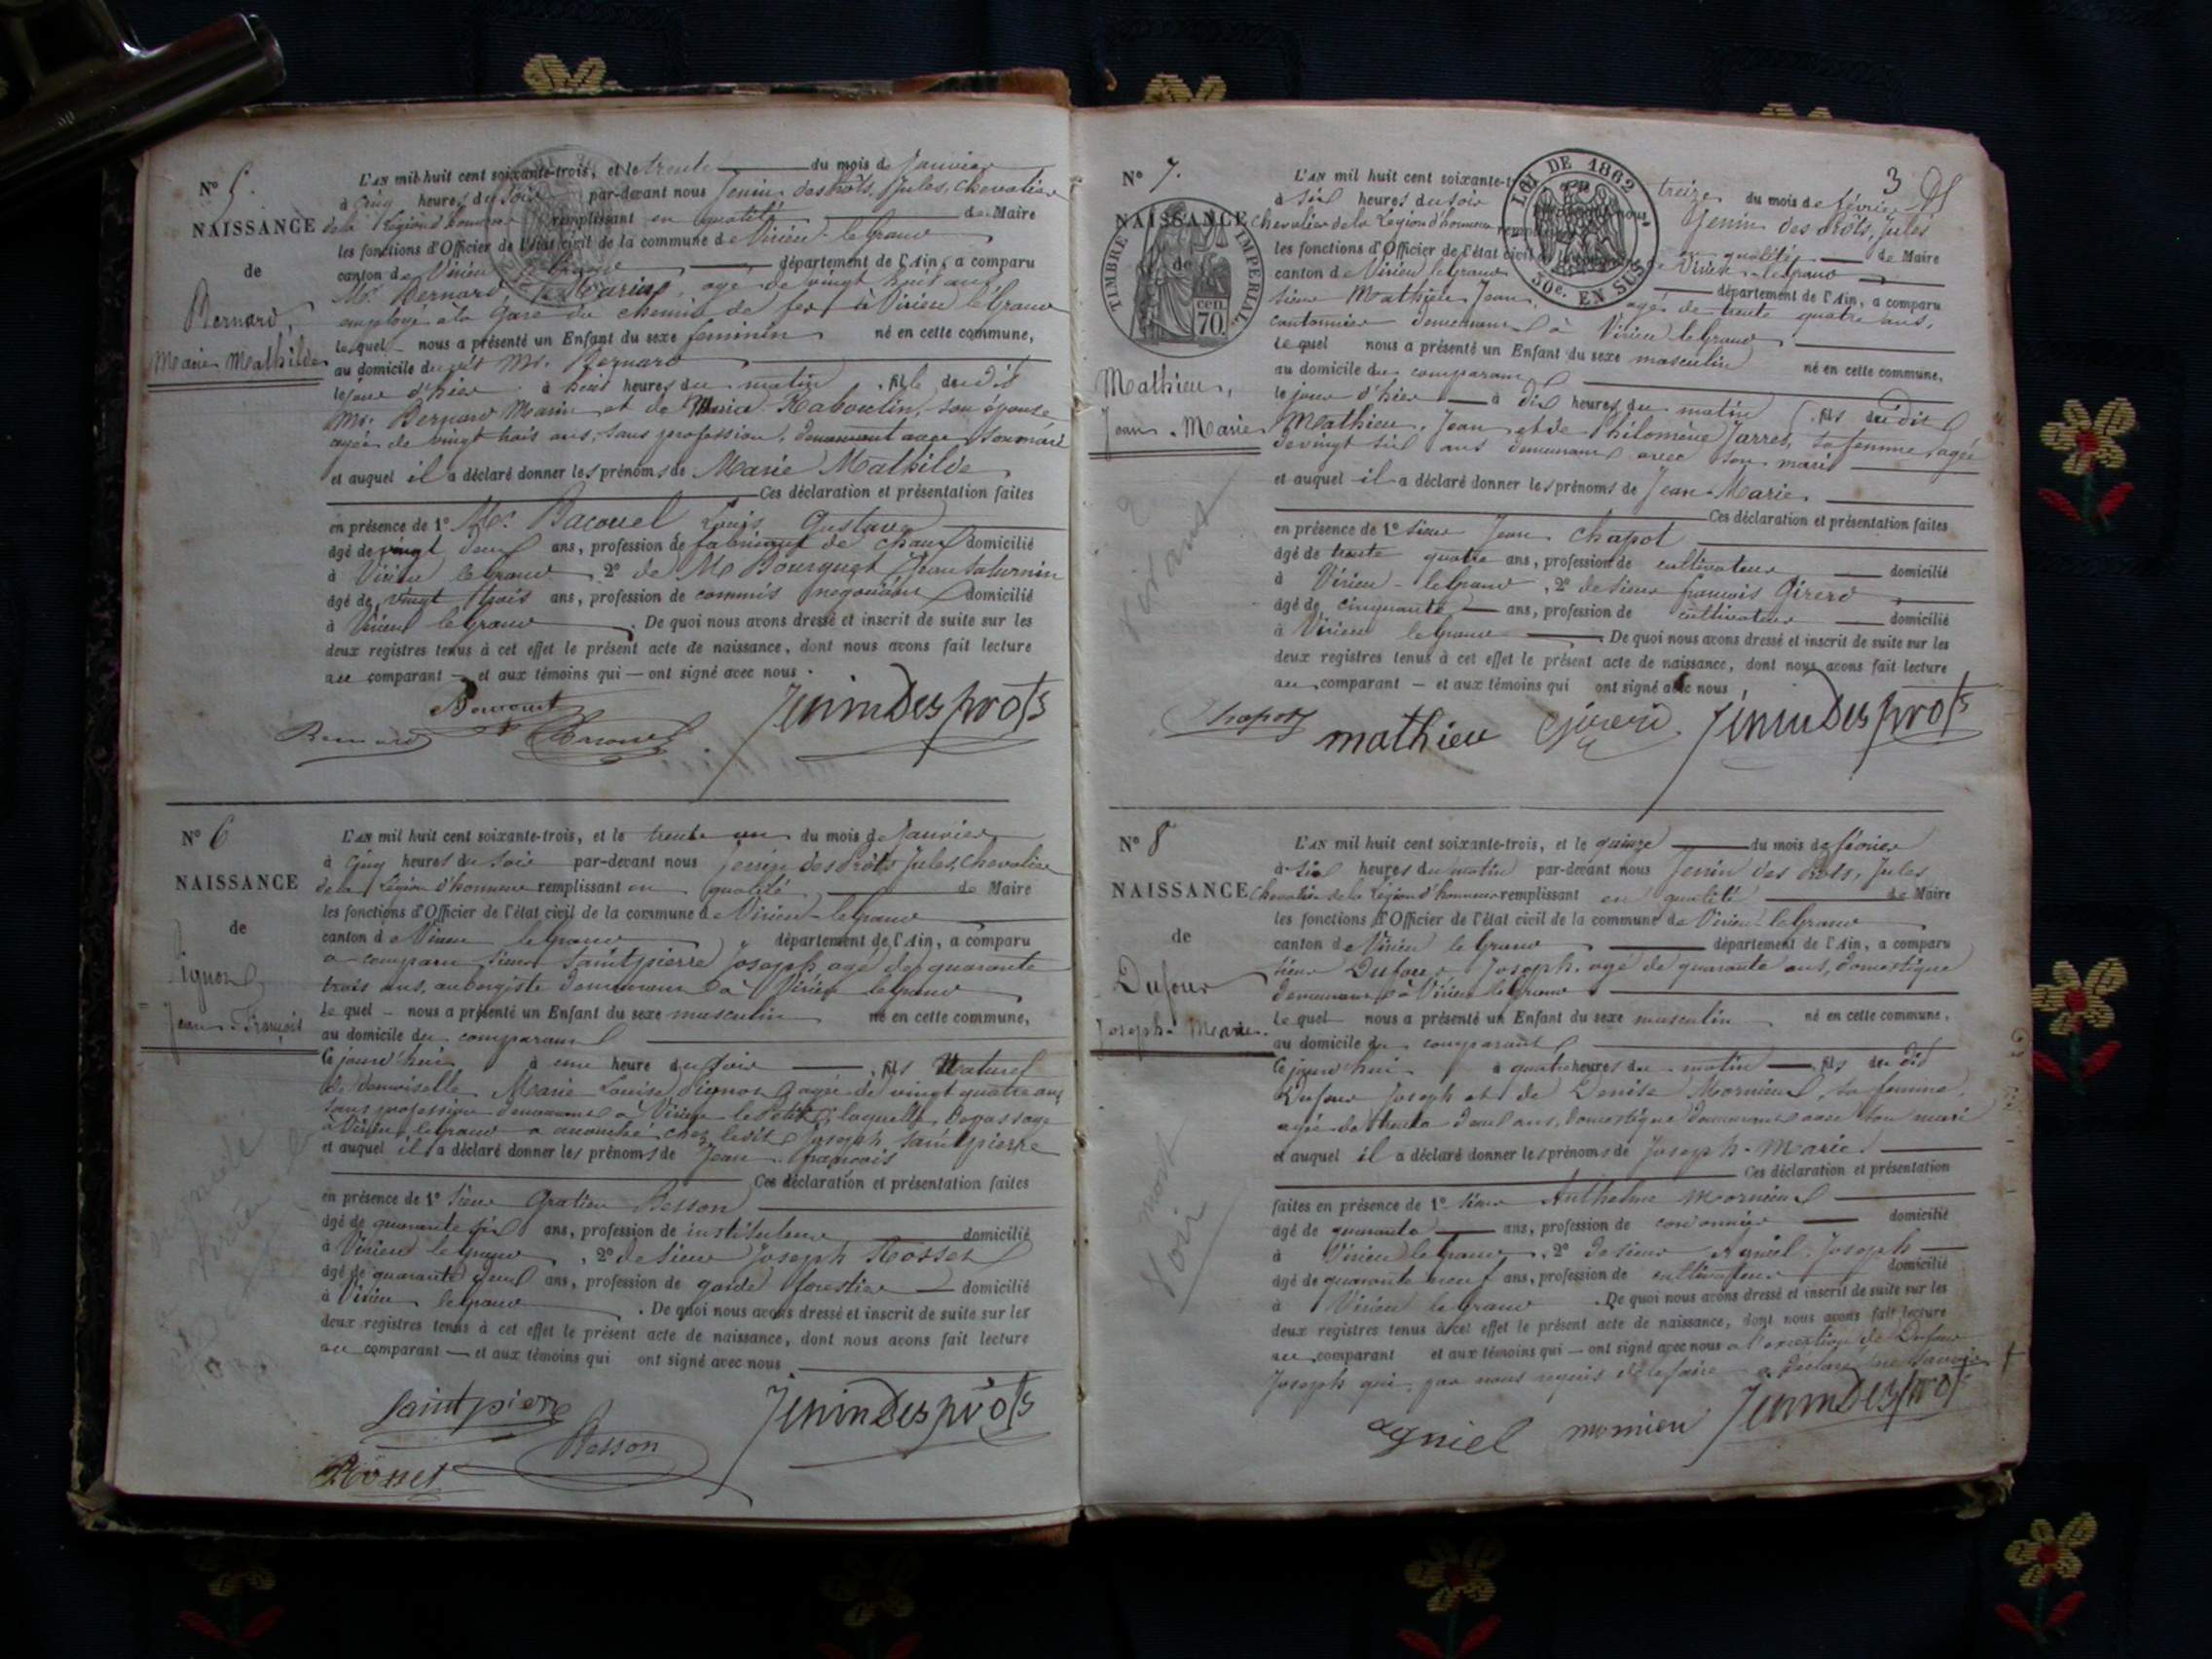 N° 5.
NAISSANCE
de
Bernard,
Marie Mathilde
L'AN mil huit cent soixante-trois, et le trente du mois de Janvier
à cinq heures du soir par-devant nous Jenin des prôts, Jules, Chevalier
de la Légion d'honneur remplissant en qualité de Maire
les fonctions d'Officier de l'état civil de la commune de Virieu-le-grand
canton de Virieu le grand département de l'Ain, a comparu
Mr Bernard Marin, agé de vingt huit ans
employé à la Gare du chemin de fer à Virieu le Grand
lequel nous a présenté un Enfant du sexe feminin né en cette commune,
au domicile dudit Mr. Bernard
le jour d'hier à huit heures du matin, fille dudit
Mr. Bernard Marin et de Maria Raboutin, son épouse
agée de vingt trois ans, sans profession, demeurant avec son mari
et auquel il a déclaré donner les prénoms de Marie Mathilde
Ces déclaration et présentation faites
en présence de 1° Mr. Bacouel Louis Gustave
âgé de vingt deux ans, profession de fabricant de chaux domicilié
à Virieu le grand 2° de Mr Bourguet Jean Saturnin
âgé de vingt trois ans, profession de commis négociant domicilié
à Virieu le grand. De quoi nous avons dressé et inscrit de suite sur les
deux registres tenus à cet effet le présent acte de naissance, dont nous avons fait lecture
au comparant et aux témoins qui ont signé avec nous.
Bernard Bacouel Jenindesprots
N° 6
NAISSANCE
de
Pignon
Jean-François
L'AN mil huit cent soixante-trois, et le trente un du mois de Janvier
à cinq heures du soir par-devant nous Jenin des prôts Jules, Chevalier
de la Légion d'honneur remplissant en qualité de Maire
les fonctions d'Officier de l'état civil de la commune de Virieu-le grand
canton de Virieu le grand département de l'Ain, a comparu
a comparu sieur Saintpierre Joseph agé de quarante
trois ans, aubergiste demeurant à Virieu le grand
lequel nous a présenté un Enfant du sexe masculin né en cette commune,
au domicile du comparant
ce jourd'hui à une heure du soir, fils Naturel
de demoiselle Marie Louise Pignon agée de vingt quatre ans
sans profession demeurant à Virieu le Petit; laquelle de passage
à Virieu le grand a accouché chez ledit Joseph Saintpierre
et auquel il a déclaré donner les prénoms de Jean françois
Ces déclaration et présentation faites
en présence de 1° Sieur Gratien Besson
âgé de quarante six ans, profession de instituteur domicilié
à Virieu le grand, 2° de sieur Joseph Rosset
âgé de quarante ans, profession de garde forestier domicilié
à Virieu le grand. De quoi nous avons dressé et inscrit de suite sur les
deux registres tenus à cet effet le présent acte de naissance, dont nous avons fait lecture
au comparant et aux témoins qui ont signé avec nous
Saintpierre Besson Jenindesprôts
Rosset
3
N° 7.
NAISSANCE
de
Mathieu,
Jean-Marie
TIMBRE IMPERIAL
cen. 70.
LOI DE 1862
30c. EN SUS
L'AN mil huit cent soixante-t treize du mois de février
à six heures du soir nous Jenin des Prôts, Jules
Chevalier de la Légion d'honneur en qualité de Maire
les fonctions d'Officier de l'état civil de Virieu-le grand
canton de Virieu le grand département de l'Ain, a comparu
sieur Mathieu Jean, agé de trente quatre ans,
cantonnier demeurant à Virieu le Grand
lequel nous a présenté un Enfant du sexe masculin né en cette commune,
au domicile du comparant
le jour d'hier à dix heures du matin, fils dudit
Mathieu, Jean et de Philomène Jarret, sa femme, agée
de vingt six ans demeurant avec son mari
et auquel il a déclaré donner les prénoms de Jean-Marie.
Ces déclaration et présentation faites
en présence de 1° sieur Jean Chapot
âgé de trente quatre ans, profession de cultivateur domicilié
à Virieu-le grand, 2° de sieur françois Girerd
âgé de cinquante ans, profession de cultivateur domicilié
à Virieu le grand. De quoi nous avons dressé et inscrit de suite sur les
deux registres tenus à cet effet le présent acte de naissance, dont nous avons fait lecture
au comparant et aux témoins qui ont signé avec nous
Chapot mathieu Girerd Jenindesprots
N° 8
NAISSANCE
de
Dufour
Joseph-Marie.
L'AN mil huit cent soixante-trois, et le quinze du mois de février
à six heures du matin par-devant nous Jenin des Prôts, Jules
Chevalier de la Légion d'honneur remplissant en qualité de Maire
les fonctions d'Officier de l'état civil de la commune de Virieu-le Grand
canton de Virieu le Grand département de l'Ain, a comparu
sieur Dufour, Joseph, agé de quarante ans, domestique
demeurant à Virieu le Grand
lequel nous a présenté un Enfant du sexe masculin né en cette commune,
au domicile du comparant
ce jourd'hui à quatre heures du matin, fils du dit
Dufour Joseph et de Denise Mornieux, sa femme,
agée de trente deux ans, domestique demeurant avec son mari
et auquel il a déclaré donner les prénoms de Joseph-Marie
Ces déclaration et présentation
faites en présence de 1° sieur Anthelme Mornieux
âgé de quarante ans, profession de cordonnier domicilié
à Virieu le Grand, 2° de sieur Agniel, Joseph
âgé de quarante neuf ans, profession de cultivateur domicilié
à Virieu le grand. De quoi nous avons dressé et inscrit de suite sur les
deux registres tenus à cet effet le présent acte de naissance, dont nous avons fait lecture
au comparant et aux témoins qui ont signé avec nous à l'exception de Dufour
Joseph qui, par nous requis de le faire a déclaré ne savoir
agniel mornieu Jenindesprots